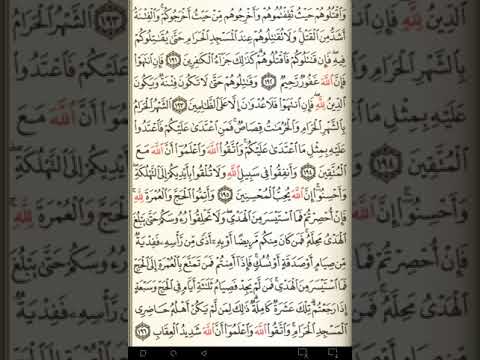 وَٱقْتُلُوهُمْ حَيْثُ ثَقِفْتُمُوهُمْ وَأَخْرِجُوهُم مِّنْ حَيْثُ أَخْرَجُوكُمْ وَٱلْفِتْنَةُ
أَشَدُّ مِنَ ٱلْقَتْلِ وَلَا تُقَٰتِلُوهُمْ عِندَ ٱلْمَسْجِدِ ٱلْحَرَامِ حَتَّىٰ يُقَٰتِلُوكُمْ
فِيهِ فَإِن قَٰتَلُوكُمْ فَٱقْتُلُوهُمْ كَذَٰلِكَ جَزَآءُ ٱلْكَٰفِرِينَ ١٩١ فَإِنِ ٱنتَهَوْا۟
فَإِنَّ ٱللَّهَ غَفُورٌ رَّحِيمٌ ١٩٢ وَقَٰتِلُوهُمْ حَتَّىٰ لَا تَكُونَ فِتْنَةٌ وَيَكُونَ
ٱلدِّينُ لِلَّهِ فَإِنِ ٱنتَهَوْا۟ فَلَا عُدْوَٰنَ إِلَّا عَلَى ٱلظَّٰلِمِينَ ١٩٣ ٱلشَّهْرُ ٱلْحَرَامُ
بِٱلشَّهْرِ ٱلْحَرَامِ وَٱلْحُرُمَٰتُ قِصَاصٌ فَمَنِ ٱعْتَدَىٰ عَلَيْكُمْ فَٱعْتَدُوا۟
عَلَيْهِ بِمِثْلِ مَا ٱعْتَدَىٰ عَلَيْكُمْ وَٱتَّقُوا۟ ٱللَّهَ وَٱعْلَمُوٓا۟ أَنَّ ٱللَّهَ مَعَ
ٱلْمُتَّقِينَ ١٩٤ وَأَنفِقُوا۟ فِى سَبِيلِ ٱللَّهِ وَلَا تُلْقُوا۟ بِأَيْدِيكُمْ إِلَى ٱلتَّهْلُكَةِ
وَأَحْسِنُوٓا۟ إِنَّ ٱللَّهَ يُحِبُّ ٱلْمُحْسِنِينَ ١٩٥ وَأَتِمُّوا۟ ٱلْحَجَّ وَٱلْعُمْرَةَ لِلَّهِ
فَإِنْ أُحْصِرْتُمْ فَمَا ٱسْتَيْسَرَ مِنَ ٱلْهَدْىِ وَلَا تَحْلِقُوا۟ رُءُوسَكُمْ حَتَّىٰ يَبْلُغَ
ٱلْهَدْىُ مَحِلَّهُۥ فَمَن كَانَ مِنكُم مَّرِيضًا أَوْ بِهِۦٓ أَذًى مِّن رَّأْسِهِۦ فَفِدْيَةٌ
مِّن صِيَامٍ أَوْ صَدَقَةٍ أَوْ نُسُكٍ فَإِذَآ أَمِنتُمْ فَمَن تَمَتَّعَ بِٱلْعُمْرَةِ إِلَى ٱلْحَجِّ
فَمَا ٱسْتَيْسَرَ مِنَ ٱلْهَدْىِ فَمَن لَّمْ يَجِدْ فَصِيَامُ ثَلَٰثَةِ أَيَّامٍ فِى ٱلْحَجِّ وَسَبْعَةٍ
إِذَا رَجَعْتُمْ تِلْكَ عَشَرَةٌ كَامِلَةٌ ذَٰلِكَ لِمَن لَّمْ يَكُنْ أَهْلُهُۥ حَاضِرِى
ٱلْمَسْجِدِ ٱلْحَرَامِ وَٱتَّقُوا۟ ٱللَّهَ وَٱعْلَمُوٓا۟ أَنَّ ٱللَّهَ شَدِيدُ ٱلْعِقَابِ ١٩٦